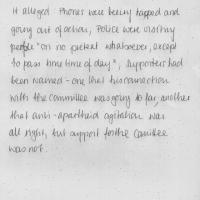 It alleged Phones were being tapped and
going out of action, Police were visiting
people "on no pretext whatsoever, except
to pass time time of day", supporters had
been warned - one that his connection
with the committee was going to far, another
that anti-apartheid agitation was
all right, but support for the Comittee
was not.